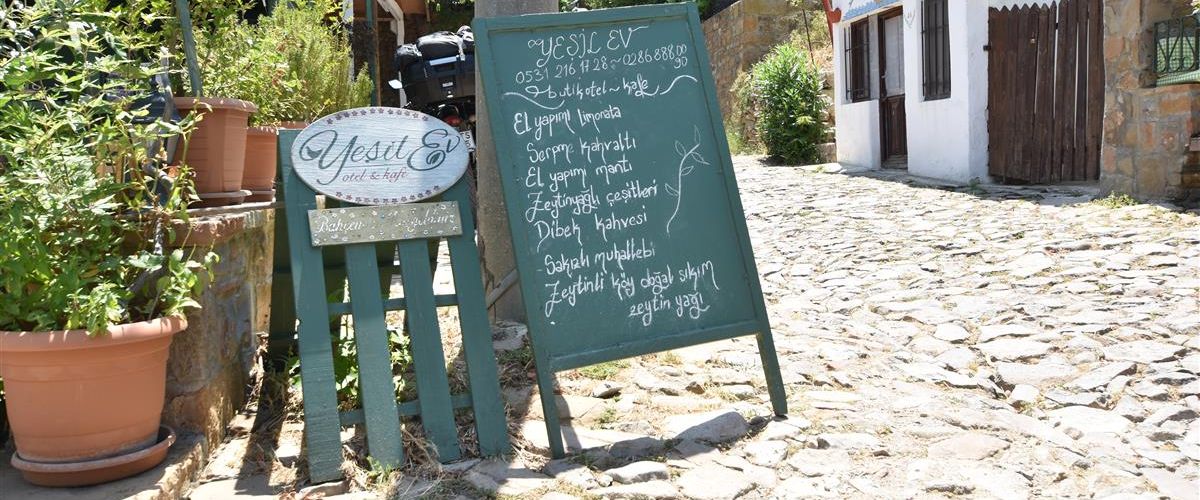 Yeşil Ev
otel & kafe
Bahçemiz
YEŞİL EV
0531 216 17 28 ~ 0286 888 00 90
butik otel ~ kafe
El yapımı limonata
Serpme kahvaltı
El yapımı mantı
Zeytinyağlı çeşitleri
Dibek kahvesi
Sakızlı muhallebi
Zeytinli köy doğal sıkım
zeytin yağı